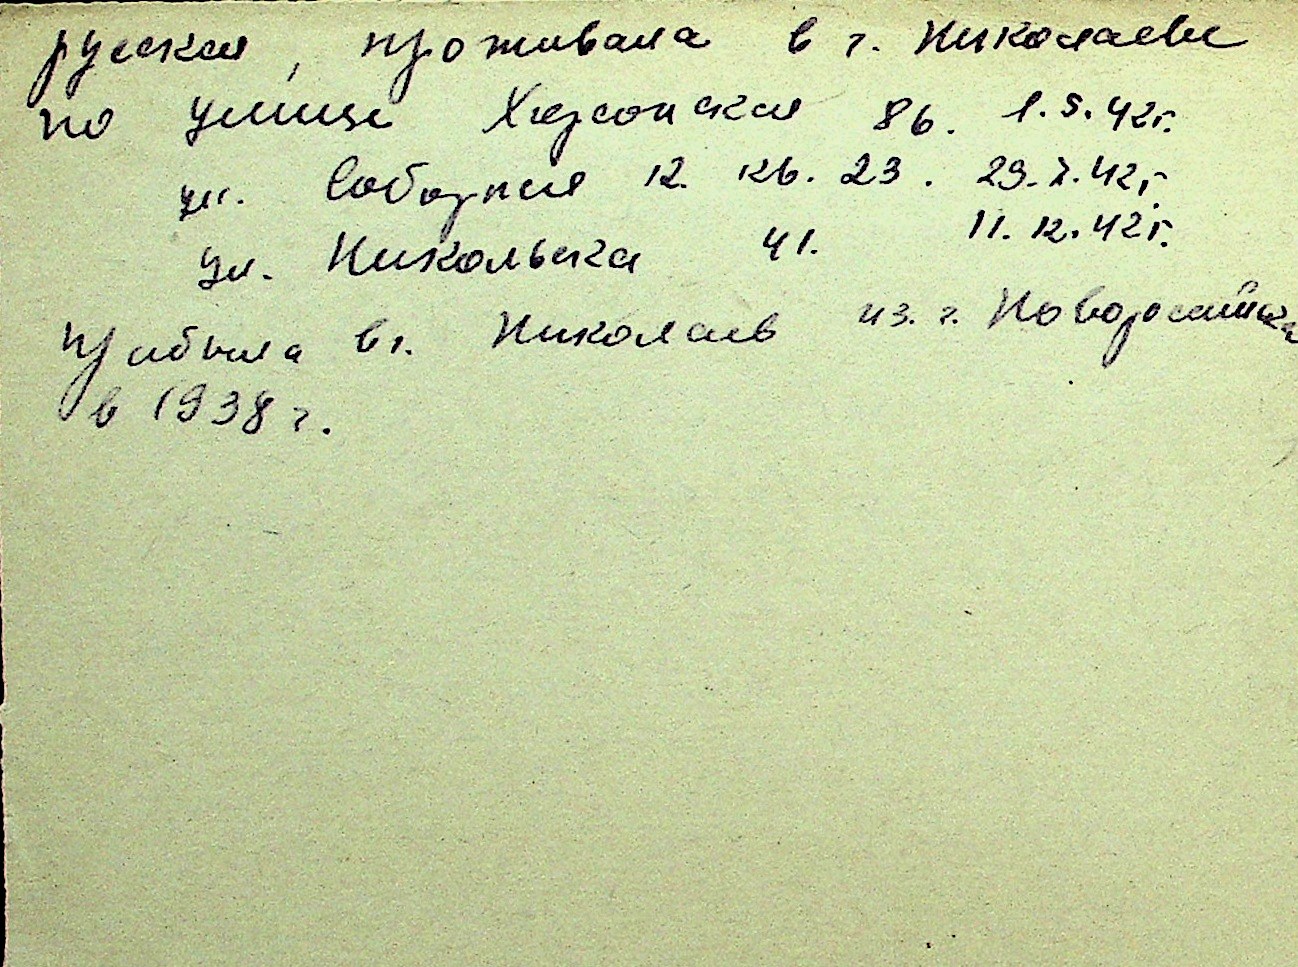 русская, проживала в г. Николаеве
по улице Херсонская 86. 1.5.42г.
ул. Соборная 12. кв. 23. 29.7.42г.
ул. Никольска 41. 11.12.42г.
Прибыла в г. Николаев из г. Новоросийска
в 1938 г.